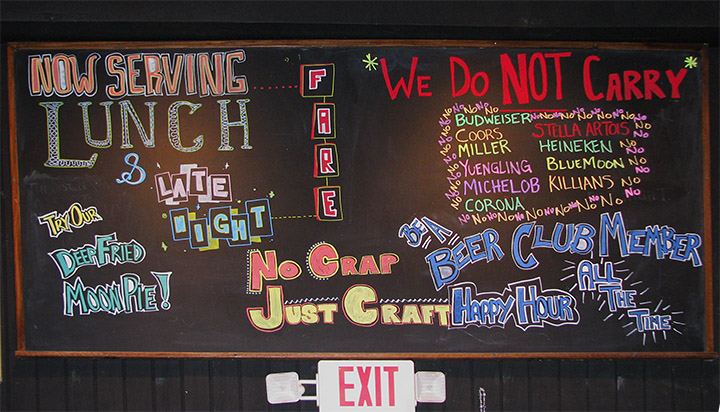 NOW SERVING
LUNCH
&
LATE
NIGHT
FARE
TRY OUR
DEEP FRIED
MOON PIE!
NO CRAP
JUST CRAFT
*WE DO NOT CARRY*
NO NO NO NO
BUDWEISER NO NO NO NO NO NO NO
COORS STELLA ARTOIS NO
MILLER HEINEKEN NO
YUENGLING BLUEMOON NO
MICHELOB KILLIANS NO
CORONA NO
NO NO NO NO NO NO NO NO NO NO
BE A
BEER CLUB MEMBER
HAPPY HOUR
ALL
THE
TIME
EXIT